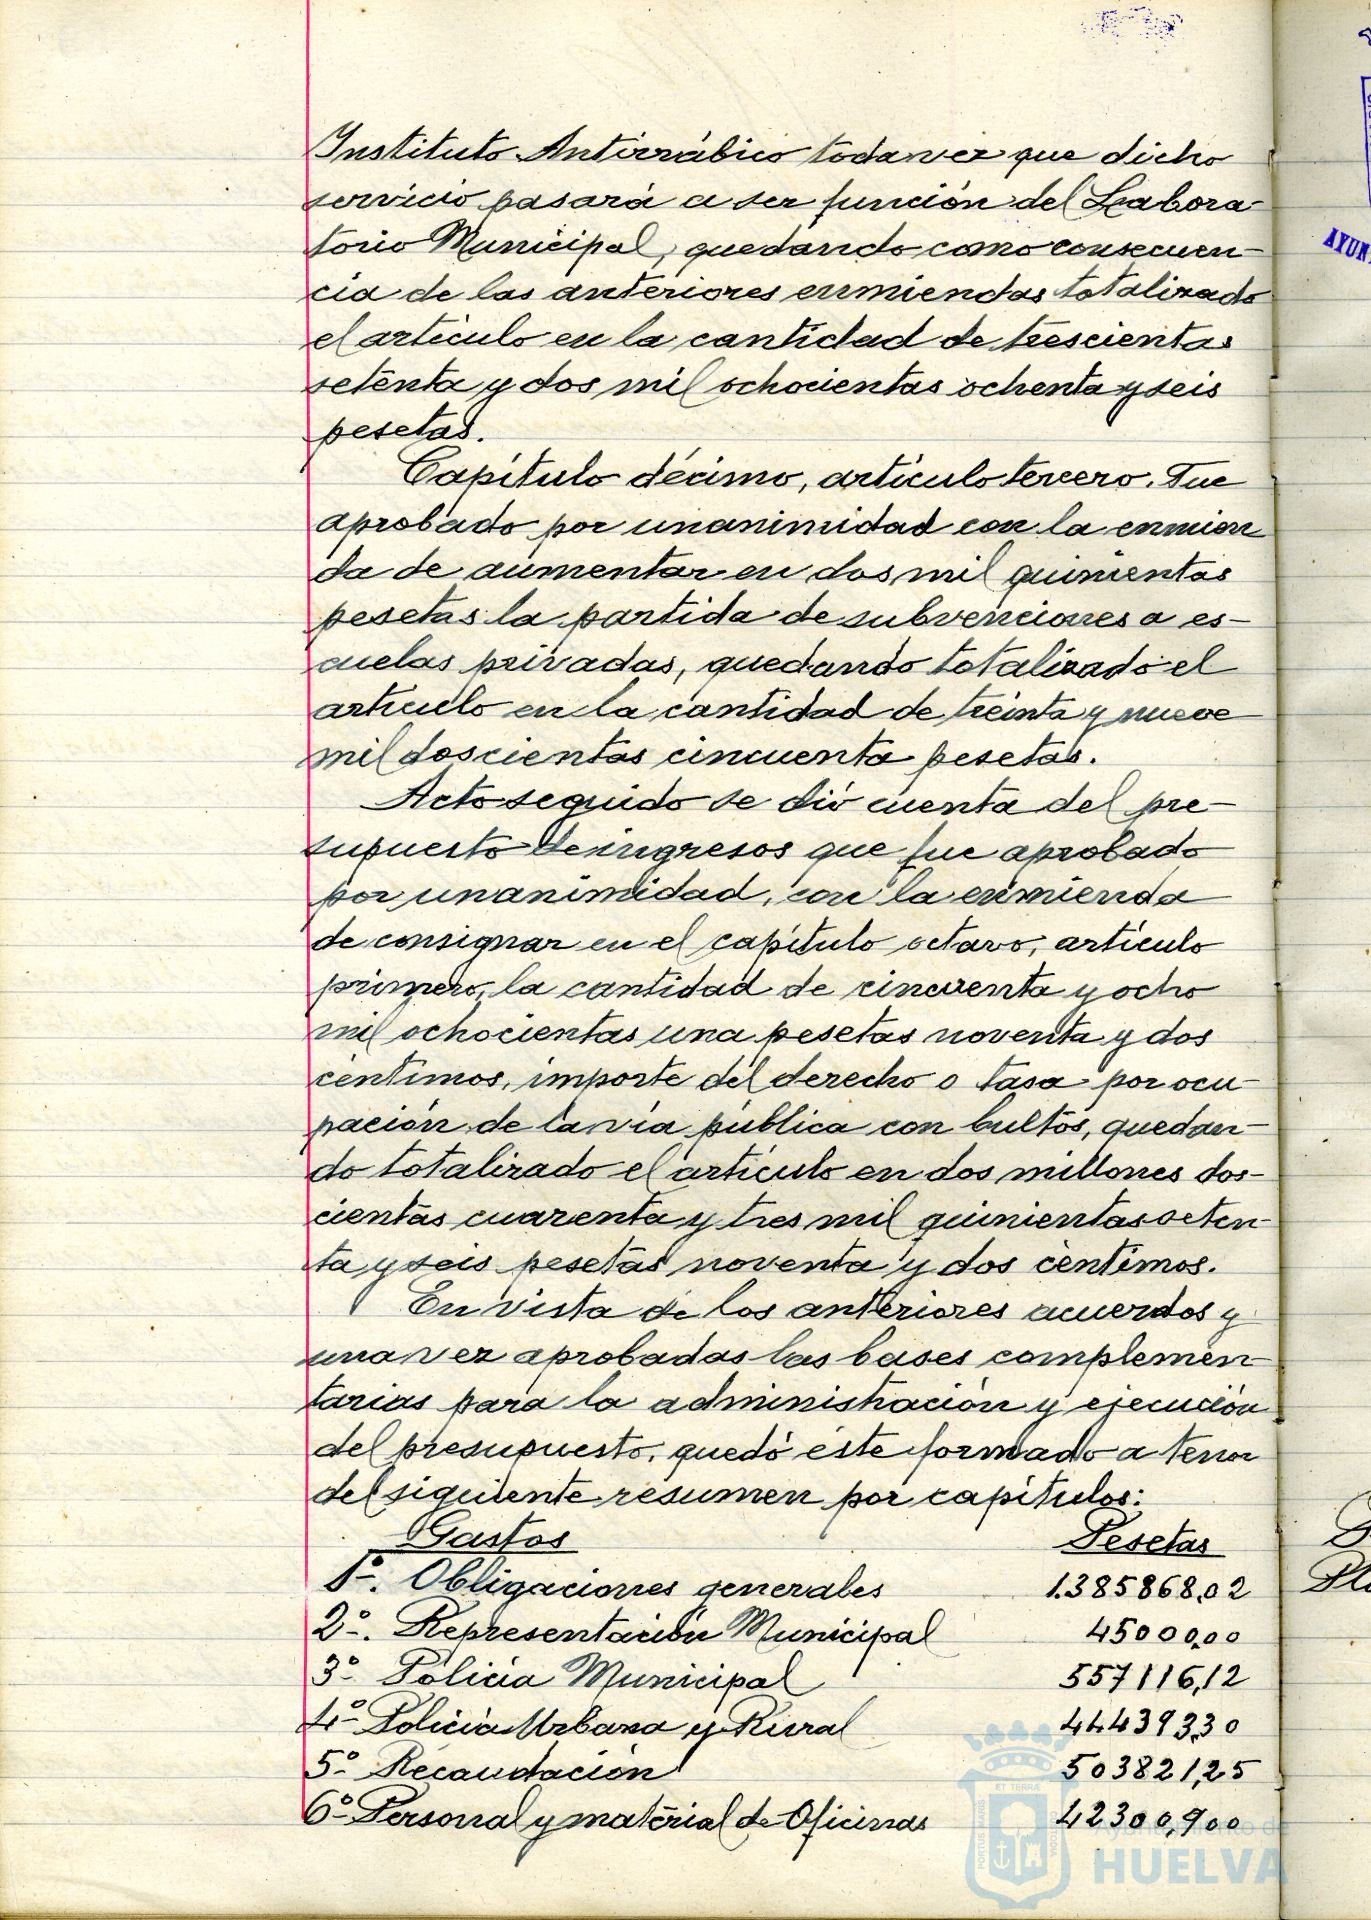 Instituto Antirrábico toda vez que dicho
servicio pasará a ser función del Labora-
torio Municipal, quedando como consecuen-
cia de las anteriores enmiendas totalizado
el artículo en la cantidad de trescientas
setenta y dos mil ochocientas ochenta y seis
pesetas.
Capítulo décimo, artículo tercero. Fue
aprobado por unanimidad con la enmien
da de aumentar en dos mil quinientas
pesetas la partida de subvenciones a es-
cuelas privadas, quedando totalizado el
artículo en la cantidad de treinta y nueve
mil doscientas cincuenta pesetas.
Acto seguido se dió cuenta del pre-
supuesto de ingresos que fue aprobado
por unanimidad, con la enmienda
de consignar en el capítulo octavo, artículo
primero, la cantidad de cincuenta y ocho
mil ochocientas una pesetas noventa y dos
céntimos, importe del derecho o tasa por ocu-
pación de la vía pública con bultos, quedan-
do totalizado el artículo en dos millones dos-
cientas cuarenta y tres mil quinientas seten-
ta y seis pesetas noventa y dos céntimos.
En vista de los anteriores acuerdos y
una vez aprobadas las bases complemen-
tarias para la administración y ejecución
del presupuesto, quedó éste formado a tenor
del siguiente resumen por capítulos:
Gastos Pesetas
1º. Obligaciones generales 1.385868,02
2º. Representación Municipal 45000,00
3º Policía Municipal 557116,12
4º Policía Urbana y Rural 444393,30
5º Recaudación 503821,25
6º Personal y material de Oficinas 42300,900
ET TERRÆ
PORTUS MARIS
CUSTODIA
Ayuntamiento de
HUELVA
AYUN